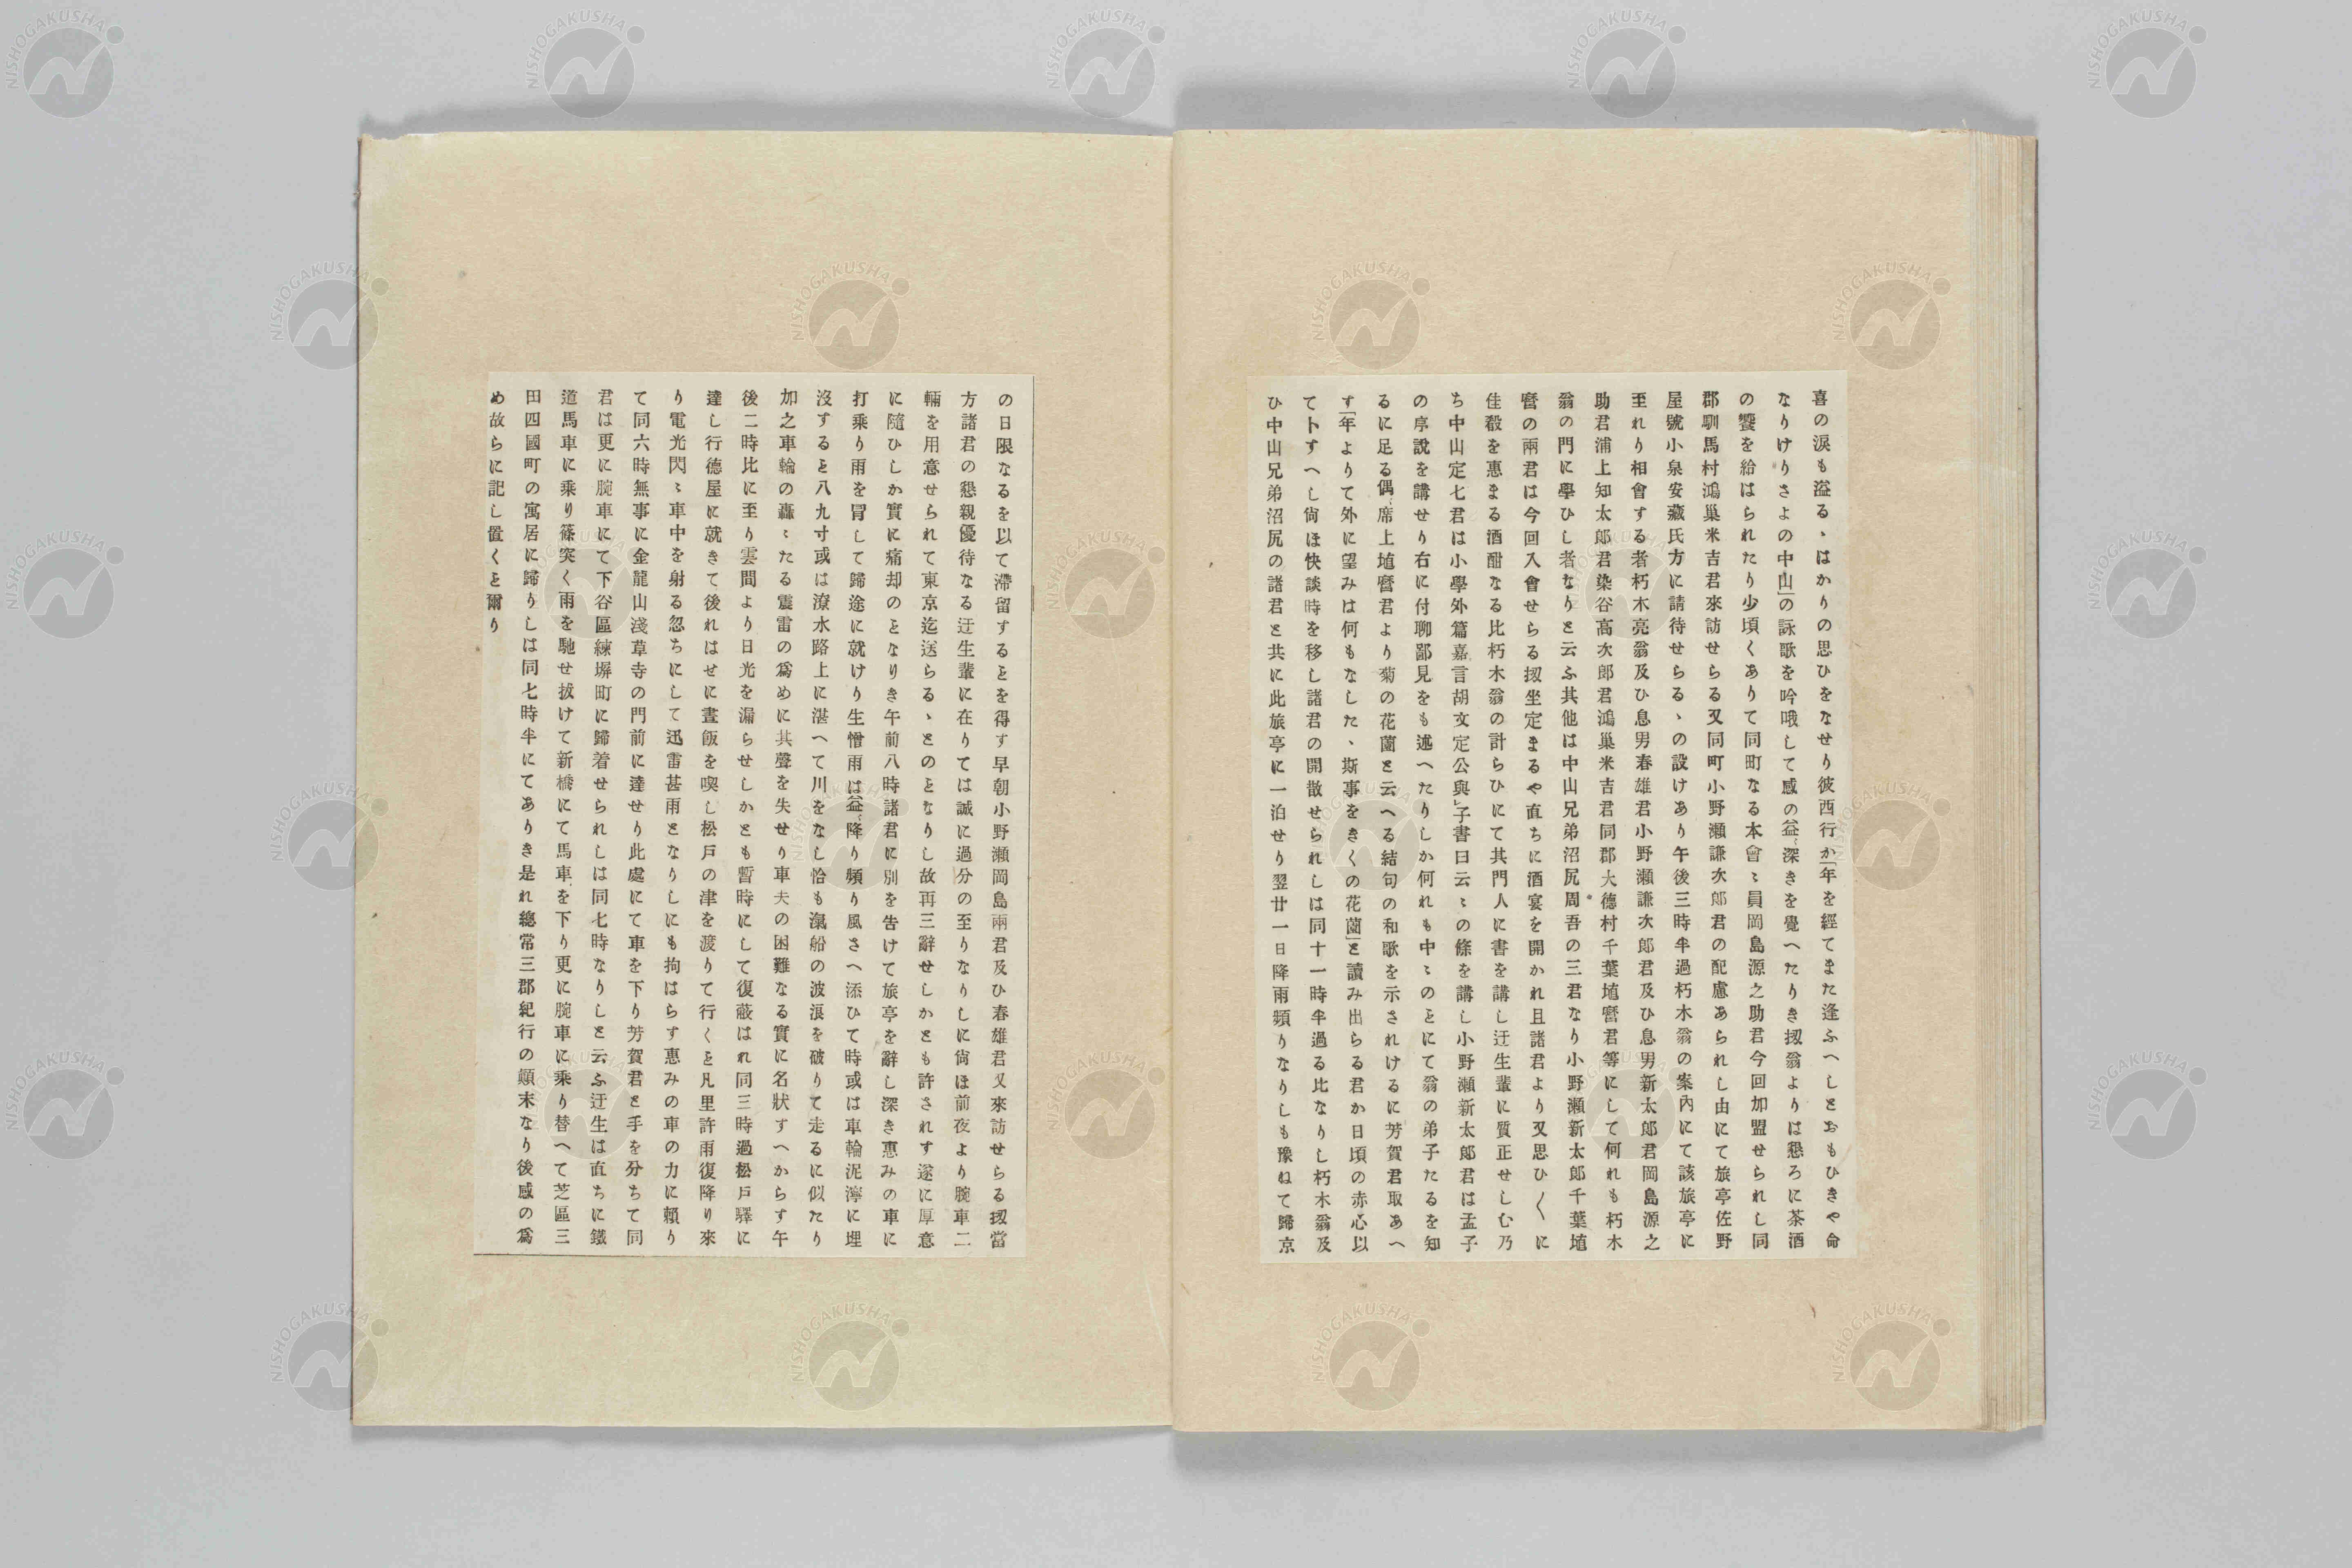 喜の淚も溢るゝはかりの思ひをなせり彼西行か「年を經てまた逢ふへしとおもひきや命
なりけりさよの中山」の詠歌を吟哦して感の益〻深きを覺へたりき扨翁よりは懇ろに茶酒
の饗を給はられたり少頃くありて同町なる本會〻員岡島源之助君今回加盟せられし同
郡馴馬村鴻巢米吉君來訪せらる又同町小野瀨謙次郎君の配慮あられし由にて旅亭佐野
屋號小泉安藏氏方に請待せらるゝの設けあり午後三時半過朽木翁の案內にて該旅亭に
至れり相會する者朽木亮翁及ひ息男春雄君小野瀨謙次郎君及ひ息男新太郎君岡島源之
助君浦上知太郎君染谷高次郎君鴻巢米吉君同郡大德村千葉埴麿君等にして何れも朽木
翁の門に學ひし者なりと云ふ其他は中山兄弟沼尻周吾の三君なり小野瀨新太郎千葉埴
麿の兩君は今回入會せらる扨坐定まるや直ちに酒宴を開かれ且諸君より又思ひ〱に
佳殽を惠まる酒酣なる比朽木翁の計らひにて其門人に書を講し迂生輩に質正せしむ乃
ち中山定七君は小學外篇嘉言胡文定公與子書曰云〻の條を講し小野瀨新太郎君は孟子
の序說を講せり右に付聊鄙見をも述へたりしか何れも中〻のヿにて翁の弟子たるを知
るに足る偶〻席上埴麿君より菊の花薗と云へる結句の和歌を示されけるに芳賀君取あへ
す「年よりて外に望みは何もなしたゝ斯事をきくの花薗」と讀み出らる君か日頃の赤心以
て卜すへし尙ほ快談時を移し諸君の開散せられしは同十一時半過る比なりし朽木翁及
ひ中山兄弟沼尻の諸君と共に此旅亭に一泊せり翌廿一日降雨頻りなりしも豫ねて歸京
の日限なるを以て滯留するヿを得す早朝小野瀨岡島兩君及ひ春雄君又來訪せらる扨當
方諸君の懇親優待なる迂生輩に在りては誠に過分の至りなりしに尙ほ前夜より腕車二
輛を用意せられて東京迄送らるゝとのヿなりし故再三辭せしかとも許されす遂に厚意
に隨ひしか實に痛却のヿなりき午前八時諸君に別を告けて旅亭を辭し深き惠みの車に
打乘り雨を冐して歸途に就けり生憎雨は益〻降り頻り風さへ添ひて時或は車輪泥濘に埋
沒するヿ八九寸或は潦水路上に湛へて川をなし恰も滊船の波浪を破りて走るに似たり
加之車輪の轟〻たる震雷の爲めに其聲を失せり車夫の困難なる實に名狀すへからす午
後二時比に至り雲間より日光を漏らせしかとも暫時にして復蔽はれ同三時過松戸驛に
達し行德屋に就きて後れはせに晝飯を喫し松戸の津を渡りて行くヿ凡里許雨復降り來
り電光閃〻車中を射る忽ちにして迅雷甚雨となりしにも拘はらす惠みの車の力に賴り
て同六時無事に金龍山淺草寺の門前に達せり此處にて車を下り芳賀君と手を分ちて同
君は更に腕車にて下谷區練塀町に歸着せられしは同七時なりしと云ふ迂生は直ちに鐵
道馬車に乘り篠突く雨を馳せ拔けて新橋にて馬車を下り更に腕車に乘り替へて芝區三
田四國町の寓居に歸りしは同七時半にてありき是れ總常三郡紀行の顚末なり後感の爲
め故らに記し置くヿ爾り
NISHOGAKUSHA